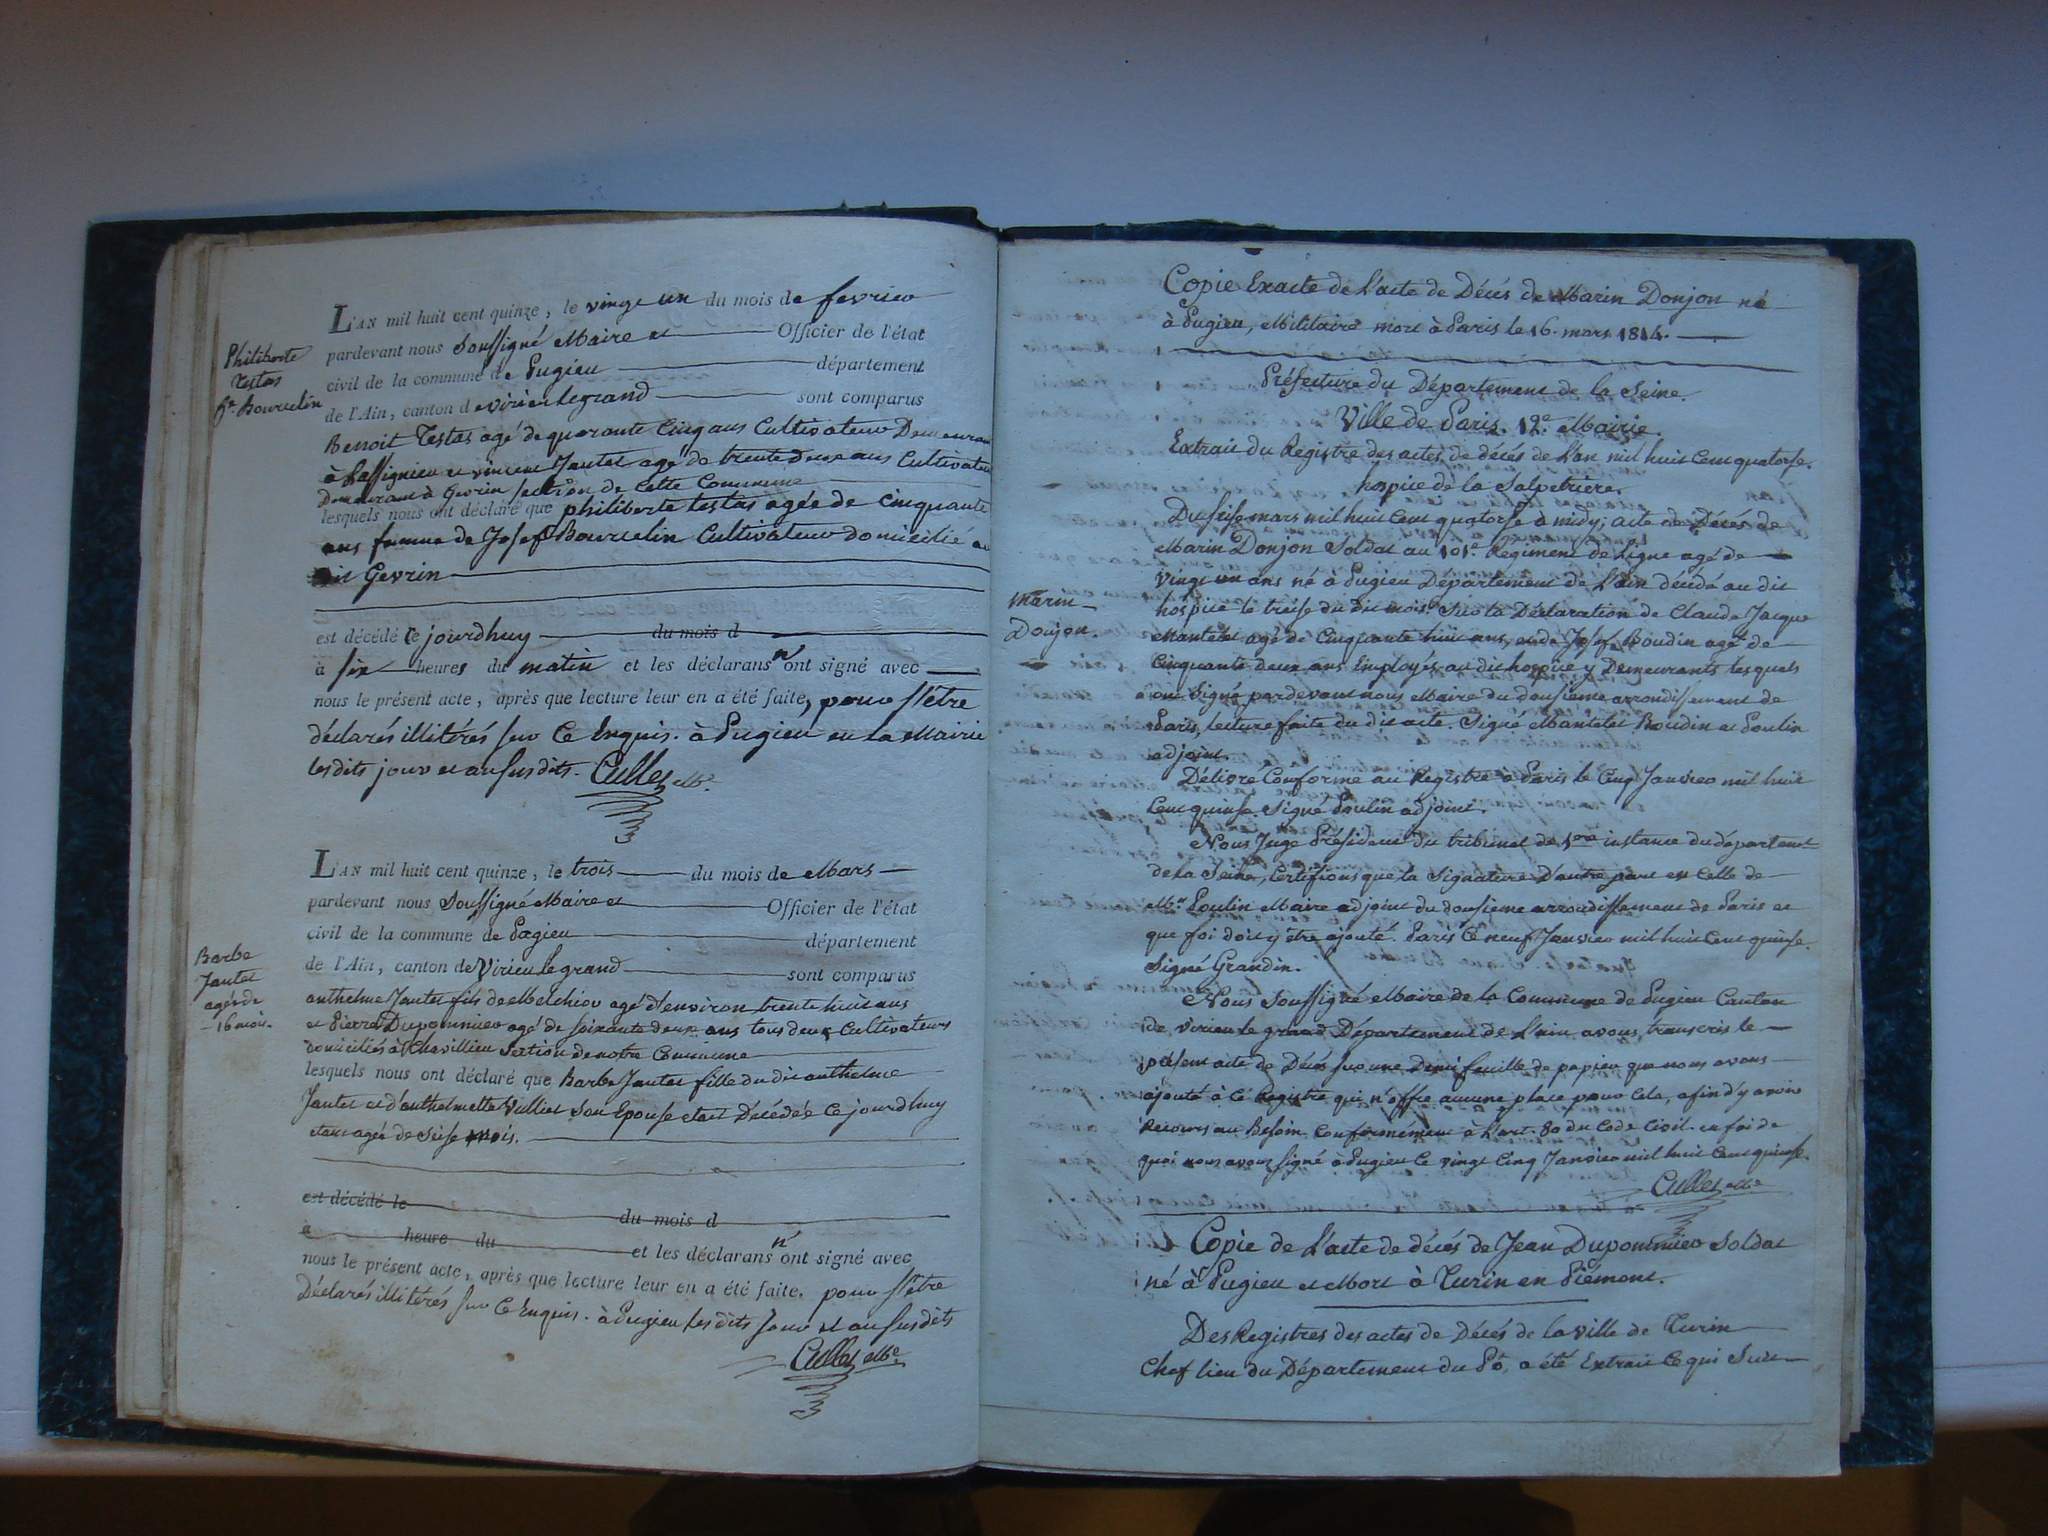 L'AN mil huit cent quinze, le vingt un du mois de fevrier
pardevant nous Soussigné Maire et Officier de l'état
civil de la commune de Pugieu département
de l'Ain, canton de virieu le grand sont comparus
Philiberte
Testas
fe. Bourcelin
Benoit Testas agé de quarante Cinq ans Cultivateur Demeurant
à Passignieu et vincent Jantet agé de trente deux ans Cultivateur
Demeurant à Gevrin section de Cette Commune
lesquels nous ont déclaré que philiberte testas agée de cinquante
ans femme de Josef Bourcelin Cultivateur domicilié au
dit Gevrin
est décédé Ce jourdhuy du mois d
à six heures du matin et les déclarans n'ont signé avec
nous le présent acte, après que lecture leur en a été faite, pour s'être
déclarés illitérés sur Ce Enquis. à Pugieu en la Mairie
lesdits jour et an susdits. Cullet Me.
L'AN mil huit cent quinze, le trois du mois de Mars
pardevant nous Soussigné Maire et Officier de l'état
civil de la commune de Pugieu département
de l'Ain, canton de Virieu le grand sont comparus
Barbe
Jantet
agée de
16 mois.
anthelme Jantet fils de Melchior agé d'environ trente huit ans
et Pierre Dupommier agé de soixante deux ans tous deux Cultivateurs
domiciliés à Chavillieu Section de notre Commune
lesquels nous ont déclaré que Barbe Jantet fille du dit anthelme
Jantet et d'anthelmette Vulliet son Epouse etait Décédée Ce jourdhuy
etant agée de seise mois.
est décédé le du mois d
à heure du et les déclarans n'ont signé avec
nous le présent acte, après que lecture leur en a été faite. pour s'être
Déclarés illitérés sur Ce Enquis. à Pugieu les dits Jour et an susdits
Cullet Me.
Copie Exacte de L'acte de Décés de Marin Donjon né
à Pugieu, Militaire mort à Paris le 16. mars 1814.
Préfecture du Département de la Seine.
Ville de Paris. 12e. Mairie.
Extrait du Registre des actes de décés de L'an mil huit Cent quatorse.
hospice de la Salpetriere.
Du seise mars mil huit Cent quatorse à midy; acte de Décés de
Marin Donjon Soldat au 101e. Régiment de Ligne agé de
vingt un ans né à Pugieu Département de L'ain décédé au dit
hospice le treise du dit mois. Sur la Déclaration de Claude Jacque
Marin
Donjon.
Mantelet agé de Cinquante huit ans, et de Josef Boudin agé de
Cinquante deux ans Employés au dit hospice y Demeurants lesquels
ont Signé pardevant nous Maire du dousieme arrondissement de
Paris, lecture faite du dit acte. Signé Mantelet Boudin et Poulin
adjoint.
Délivré Conforme au Registre à Paris le Cinq Janvier mil huit
Cent quinse. Signé Poulin adjoint.
Nous Juge Président du tribunal de 1ere instance du département
de la Seine, Certifions que la Signature D'autre part est Celle de
Mr. Poulin Maire adjoint du dousieme arrondissement de Paris et
que foi doit y être ajouté. Paris Ce neuf Janvier mil huit Cent quinse.
Signé Grandin.
Nous Soussigné Maire de la Commune de Pugieu Canton
de virieu le grand Département de L'ain avons transcris le
présent acte de Décés sur une Demi feuille de papier que nous avons
ajouté à Ce Registre qui n'offre aucune place pour Cela, afin d'y avoir
Recours au Besoin Conformément à L'art. 80 du Code Civil. en foi de
quoi nous avons signé à Pugieu Ce vingt Cinq Janvier mil huit Cent quinse.
Cullet Me.
Copie de L'acte de décés de Jean Dupommier Soldat
né à Pugieu et Mort à Turin en Piémont.
Des Registres des actes de Décés de la ville de Turin
Chef lieu du Département du Pô, a été Extrait Ce qui Suit